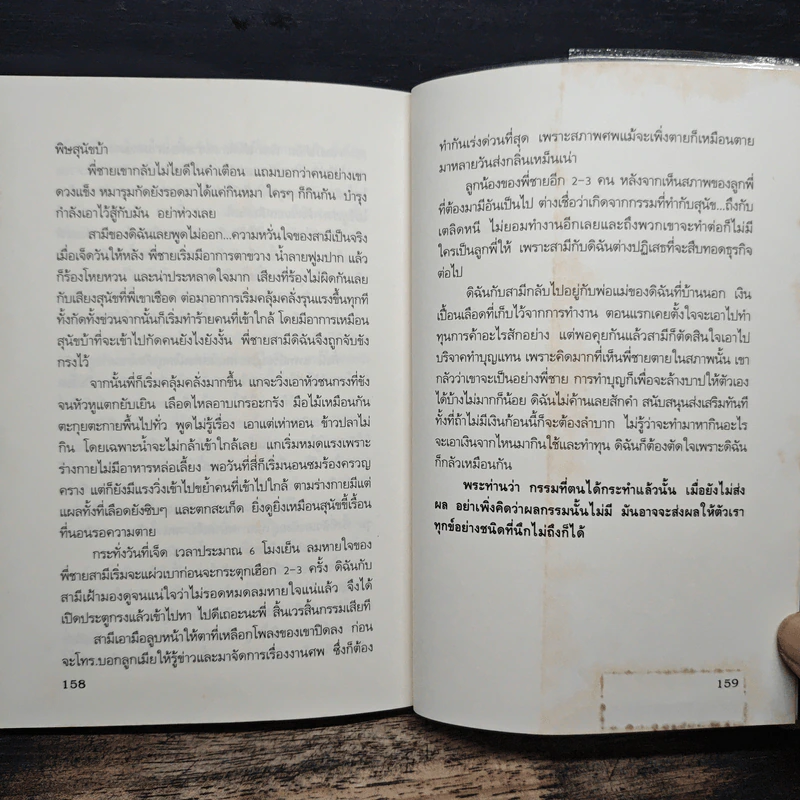 พิษสุนัขบ้า
พี่ชายเขากลับไม่ไยดีในคำเตือน แถมบอกว่าคนอย่างเขา
ดวงแข็ง หมารุมกัดยังรอดมาได้แค่กินหมา ใครๆ ก็กินกัน บำรุง
กำลังเอาไว้สู้กับมัน อย่าห่วงเลย
สามีของดิฉันเลยพูดไม่ออก...ความหวั่นใจของสามีเป็นจริง
เมื่อเจ็ดวันให้หลัง พี่ชายเริ่มมีอาการตาขวาง น้ำลายฟูมปาก แล้ว
ก็ร้องโหยหวน และน่าประหลาดใจมาก เสียงที่ร้องไม่ผิดกันเลย
กับเสียงสุนัขที่พี่เขาเชือด ต่อมาอาการเริ่มคลุ้มคลั่งรุนแรงขึ้นทุกที
ทั้งกัดทั้งข่วนจากนั้นก็เริ่มทำร้ายคนที่เข้าใกล้ โดยมีอาการเหมือน
สุนัขบ้าที่จะเข้าไปกัดคนยังไงยังงั้น พี่ชายสามีดิฉันจึงถูกจับขัง
กรงไว้
จากนั้นพี่ก็เริ่มคลุ้มคลั่งมากขึ้น แกจะวิ่งเอาหัวชนกรงที่ขัง
จนหัวหูแตกยับเยิน เลือดไหลอาบเกรอะกรัง มือไม้เหมือนกัน
ตะกุยตะกายพื้นไปทั่ว พูดไม่รู้เรื่อง เอาแต่เห่าหอน ข้าวปลาไม่
กิน โดยเฉพาะน้ำจะไม่กล้าเข้าใกล้เลย แกเริ่มหมดแรงเพราะ
ร่างกายไม่มีอาหารหล่อเลี้ยง พอวันที่สี่ก็เริ่มนอนซมร้องครวญ
คราง แต่ก็ยังมีแรงวิ่งเข้าไปขย้ำคนที่เข้าไปใกล้ ตามร่างกายมีแต่
แผลทั้งที่เลือดยังซิบๆ และตกสะเก็ด ยิ่งดูยิ่งเหมือนสุนัขขี้เรื้อน
ที่นอนรอความตาย
กระทั่งวันที่เจ็ด เวลาประมาณ 6 โมงเย็น ลมหายใจของ
พี่ชายสามีเริ่มจะแผ่วเบาก่อนจะกระตุกเฮือก 2-3 ครั้ง ดิฉันกับ
สามีเฝ้ามองดูจนแน่ใจว่าไม่รอดหมดลมหายใจแน่แล้ว จึงได้
เปิดประตูกรงแล้วเข้าไปหา ไปดีเถอะนะพี่ สิ้นเวรสิ้นกรรมเสียที
สามีเอามือลูบหน้าให้ตาที่เหลือกโพลงของเขาปิดลง ก่อน
จะโทร.บอกลูกเมียให้รู้ข่าวและมาจัดการเรื่องงานศพ ซึ่งก็ต้อง
158
ทำกันเร่งด่วนที่สุด เพราะสภาพศพแม้จะเพิ่งตายก็เหมือนตาย
มาหลายวันส่งกลิ่นเหม็นเน่า
ลูกน้องของพี่ชายอีก 2-3 คน หลังจากเห็นสภาพของลูกพี่
ที่ต้องมามีอันเป็นไป ต่างเชื่อว่าเกิดจากกรรมที่ทำกับสุนัข...ถึงกับ
เตลิดหนี ไม่ยอมทำงานอีกเลยและถึงพวกเขาจะทำต่อก็ไม่มี
ใครเป็นลูกพี่ให้ เพราะสามีกับดิฉันต่างปฏิเสธที่จะสืบทอดธุรกิจ
ต่อไป
ดิฉันกับสามีกลับไปอยู่กับพ่อแม่ของดิฉันที่บ้านนอก เงิน
เปื้อนเลือดที่เก็บไว้จากการทำงาน ตอนแรกเคยตั้งใจจะเอาไปทำ
ทุนการค้าอะไรสักอย่าง แต่พอคุยกันแล้วสามีก็ตัดสินใจเอาไป
บริจาคทำบุญแทน เพราะคิดมากที่เห็นพี่ชายตายในสภาพนั้น เขา
กลัวว่าเขาจะเป็นอย่างพี่ชาย การทำบุญก็เพื่อจะล้างบาปให้ตัวเอง
ได้บ้างไม่มากก็น้อย ดิฉันไม่ค้านเลยสักคำ สนับสนุนส่งเสริมทันที
ทั้งที่ถ้าไม่มีเงินก้อนนี้ก็จะต้องลำบาก ไม่รู้ว่าจะทำมาหากินอะไร
จะเอาเงินจากไหนมากินใช้และทำทุน ดิฉันก็ต้องตัดใจเพราะดิฉัน
ก็กลัวเหมือนกัน
พระท่านว่า กรรมที่ตนได้กระทำแล้วนั้น เมื่อยังไม่ส่ง
ผล อย่าเพิ่งคิดว่าผลกรรมนั้นไม่มี มันอาจจะส่งผลให้ตัวเรา
ทุกข์อย่างชนิดที่นึกไม่ถึงก็ได้
159